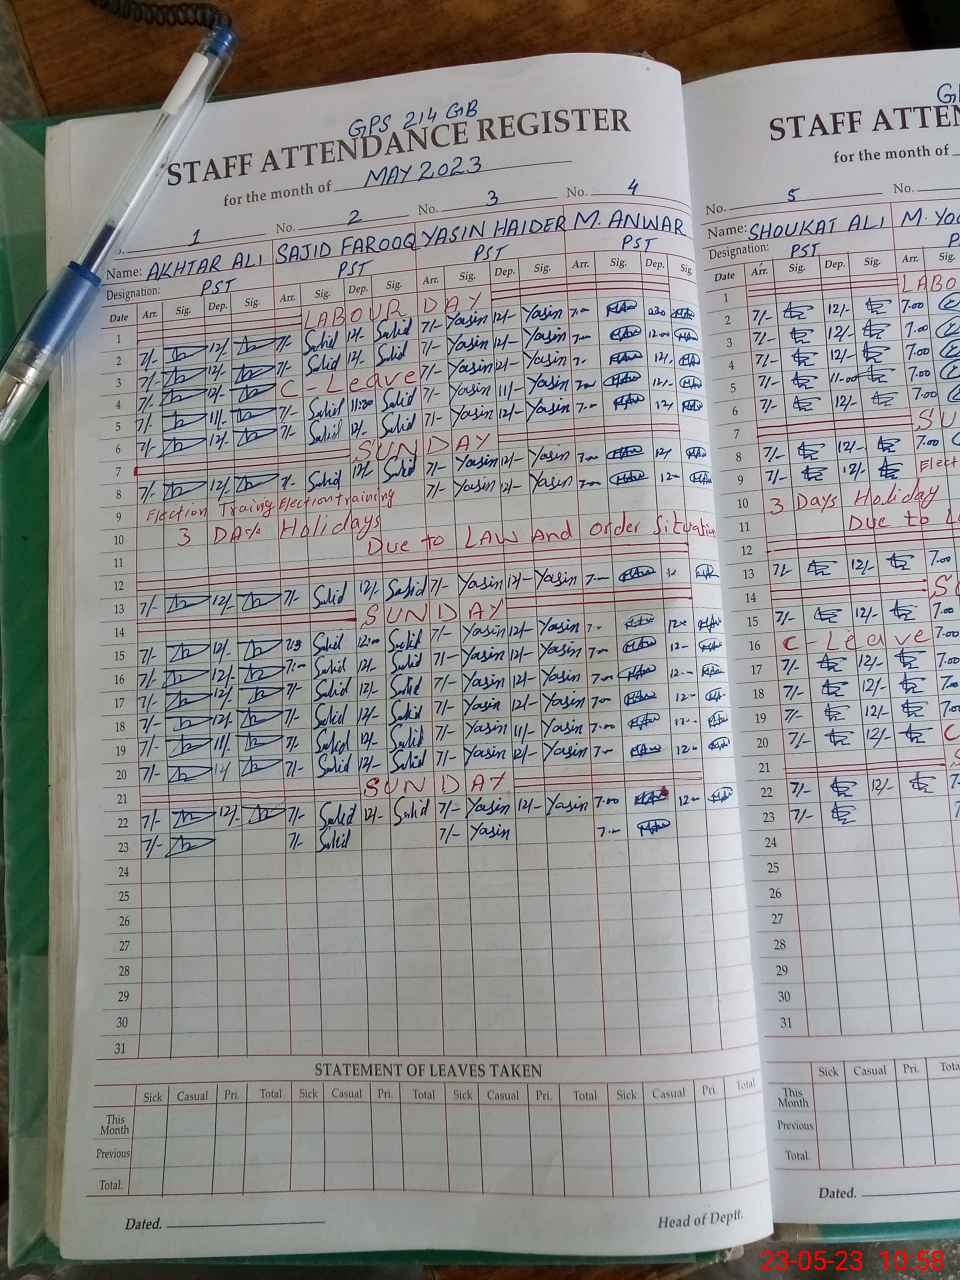 GPS 214 GB
STAFF ATTENDANCE REGISTER
for the month of MAY 2023
1 No. 2 No. 3 No. 4
Name: AKHTAR ALI SAJID FAROOQ YASIN HAIDER M. ANWAR
Designation: PST PST PST PST
Date Arr. Sig. Dep. Sig. Arr. Sig. Dep. Sig. Arr. Sig. Dep. Sig. Arr. Sig. Dep. Sig.
1 LABOUR DAY
2 7/- 12/- 7/- Sajid 12/- Sajid 7/- Yasin 12/- Yasin 7.00
3 7/- 12/- 7/- Sajid 12/- Sajid 7/- Yasin 12/- Yasin 7.00 12.00
4 7/- 12/- C-Leave 7/- Yasin 12/- Yasin 7.00 12/-
5 7/- 11/- 7/- Sajid 11:00 Sajid 7/- Yasin 11/- Yasin 7.00
6 7/- 12/- 7/- Sajid 12/- Sajid 7/- Yasin 12/- Yasin 7.00 12/
7 SUNDAY
8 7/- 12/- 7/- Sajid 12/- Sajid 7/- Yasin 12/- Yasin 7.00 12/
9 Election Traing Election training 7/- Yasin 12/- Yasin 7.00 12.00
10 3 DAys Holidays
11 Due to LAW And Order Situation
12
13 7/- 12/- 7/- Sajid 12/- Sajid 7/- Yasin 12/- Yasin 7.00
14 SUNDAY
15 7/- 12/- Sajid 12:00 Sajid 7/- Yasin 12/- Yasin 7.00 12.00
16 7/- 12/- 7:00 Sajid 12/- Sajid 7/- Yasin 12/- Yasin 7.00
17 7/- 12/- 7/- Sajid 12/- Sajid 7/- Yasin 12/- Yasin 7.00
18 7/- 12/- 7/- Sajid 12/- Sajid 7/- Yasin 12/- Yasin 7.00
19 7/- 11/- 7/- Sajid 12/- Sajid 7/- Yasin 11/- Yasin 7.00
20 7/- 12/ 7/- Sajid 12/- Sajid 7/- Yasin 12/- Yasin 7.00 12.00
21 SUNDAY
22 7/- 12/- 7/- Sajid 12/- Sajid 7/- Yasin 12/- Yasin 7.00 12.00
23 7/- 7/- Sajid 7/- Yasin 7.00
24
25
26
27
28
29
30
31
STATEMENT OF LEAVES TAKEN
Sick Casual Pri. Total Sick Casual Pri. Total Sick Casual Pri. Total Sick Casual Pri. Total
This Month
Previous
Total.
Dated. Head of Deptt.
STAFF ATTEN
for the month of
No. 5 No.
Name: SHOUKAT ALI M. YO
Designation: PST
Date Arr. Sig. Dep. Sig. Arr. Sig.
1 LABO
2 7/- 12/- 7.00
3 7/- 12/- 7.00
4 7/- 12/- 7.00
5 7/- 11.00 7.00
6 7/- 12/- 7.00
7 SU
8 7/- 12/- 7.00
9 7/- 12/- Elect
10 3 Days Holiday
11 Due to
12
13 7/- 12/- 7.00
14 S
15 7/- 12/- 7.00
16 C-Leave 7.00
17 7/- 12/- 7.00
18 7/- 12/-
19 7/- 12/-
20 7/- 12/- C
21 S
22 7/- 12/- 12/-
23 7/-
24
25
26
27
28
29
30
31
Sick Casual Pri. Tota
This Month
Previous
Total.
Dated.
23-05-23 10:58